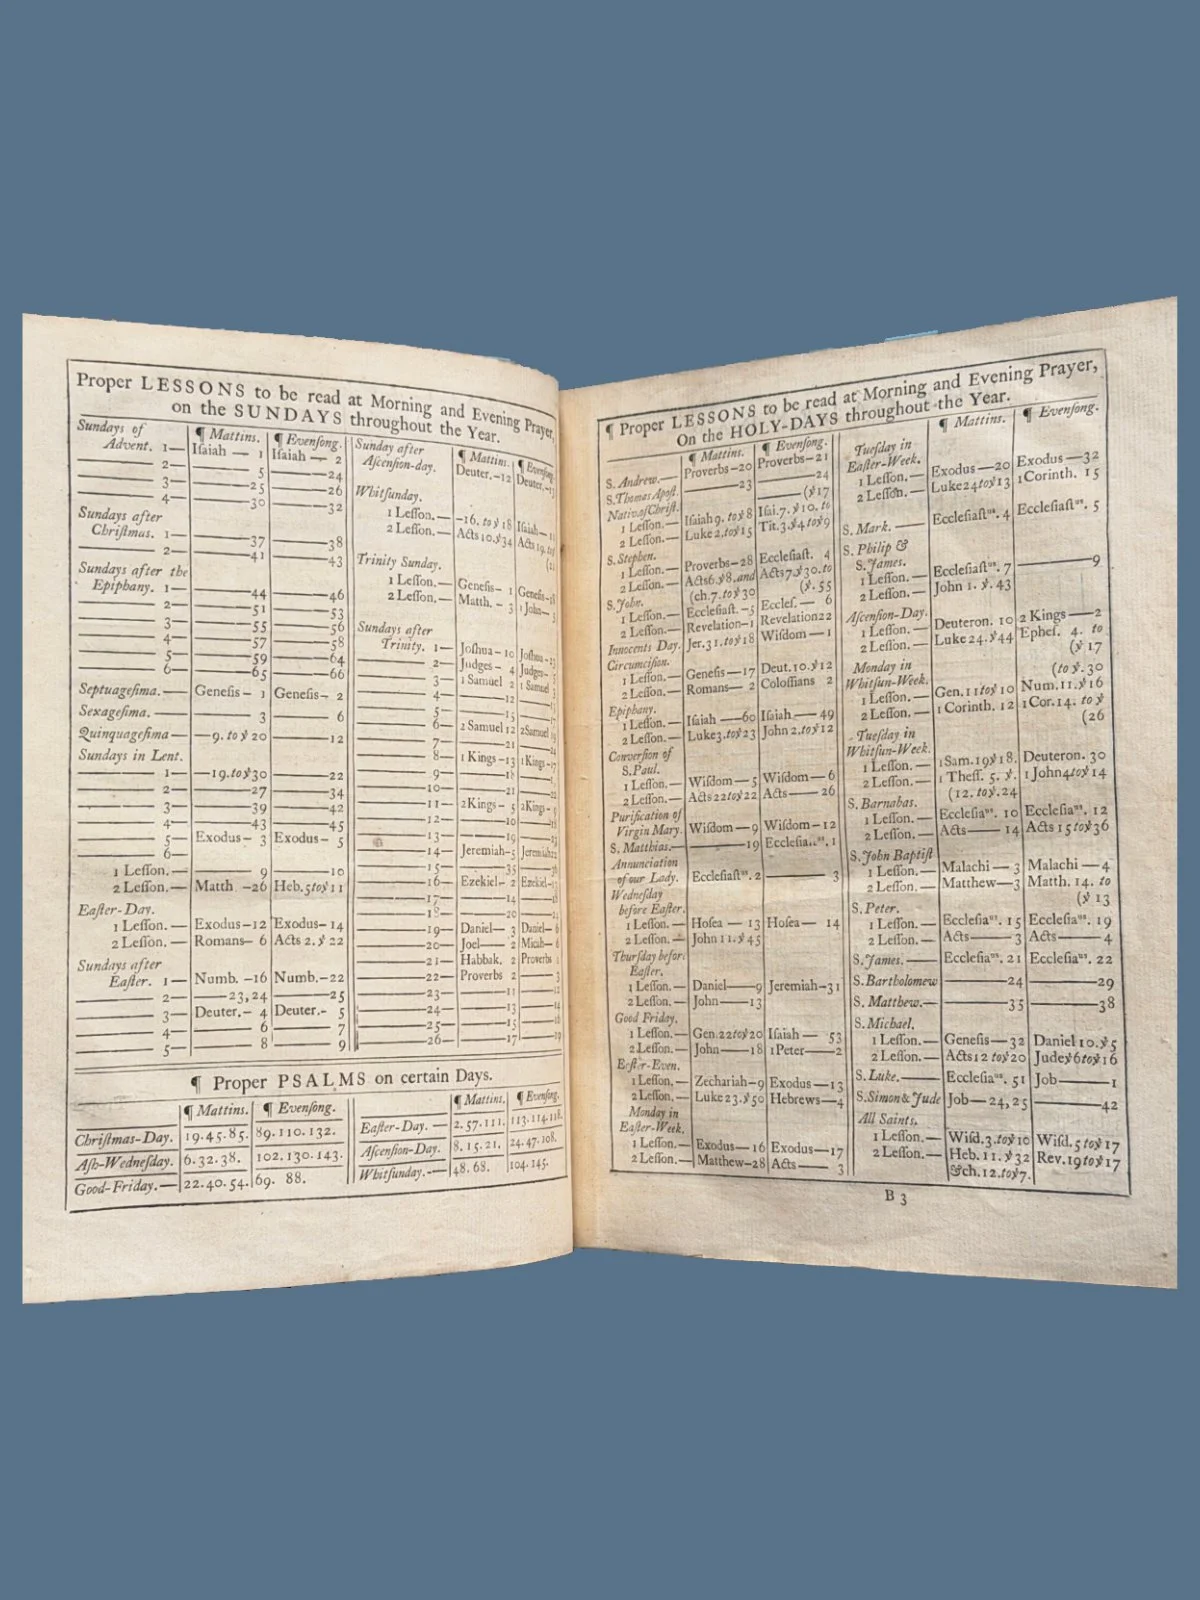 Proper LESSONS to be read at Morning and Evening Prayer,
on the SUNDAYS throughout the Year.
Sundays of ¶ Mattins. ¶ Evenſong.
Advent. 1— Iſaiah — 1 Iſaiah — 2
—— 2— —— 5 ——24
—— 3— ——25 ——26
—— 4— ——30 ——32
Sundays after
Chriſtmas. 1— ——37 ——38
—— 2— ——41 ——43
Sundays after the
Epiphany. 1— ——44 ——46
—— 2— ——51 ——53
—— 3— ——55 ——56
—— 4— ——57 ——58
—— 5— ——59 ——64
—— 6— ——65 ——66
Septuageſima.— Geneſis— 1 Geneſis— 2
Sexageſima.— —— 3 —— 6
Quinquageſima— —9. to ẏ 20 ——12
Sundays in Lent.
—— 1— —19.to ẏ 30 ——22
—— 2— ——27 ——34
—— 3— ——39 ——42
—— 4— ——43 ——45
—— 5— Exodus— 3 Exodus— 5
—— 6—
1 Leſſon.— —— 9 ——10
2 Leſſon.— Matth —26 Heb. 5 to ẏ 11
Eaſter-Day.
1 Leſſon.— Exodus—12 Exodus—14
2 Leſſon.— Romans— 6 Acts 2. ẏ 22
Sundays after
Eaſter. 1— Numb. —16 Numb.—22
—— 2— ——23,24 ——25
—— 3— Deuter.— 4 Deuter.— 5
—— 4— —— 6 —— 7
—— 5— —— 8 —— 9
Sunday after ¶ Mattins. ¶ Evenſong
Aſcenſion-day. Deuter.—12 Deuter.—13
Whitſunday.
1 Leſſon.— —16. to ẏ 18 Iſaiah—11
2 Leſſon.— Acts 10. ẏ 34 Acts 19. to ẏ
(21
Trinity Sunday.
1 Leſſon.— Geneſis— 1 Geneſis—18
2 Leſſon.— Matth. — 3 1 John— 5
Sundays after
Trinity. 1— Joſhua—10 Joſhua—23
—— 2— Judges— 4 Judges— 5
—— 3— 1 Samuel 2 1 Samuel 3
—— 4— ——12 ——13
—— 5— ——15 ——17
—— 6— 2 Samuel 12 2 Samuel 19
—— 7— ——21 ——24
—— 8— 1 Kings—13 1 Kings—17
—— 9— ——18 ——
——10— ——21 ——22
——11— 2 Kings— 5 2 Kings—
——12— ——10 ——18
——13— ——19 ——23
——14— Jeremiah—5 Jeremiah 22
——15— ——35 ——36
——16— Ezekiel— 2 Ezekiel—13
——17— ——14 ——18
——18— ——20 ——24
——19— Daniel— 3 Daniel— 6
——20— Joel— 2 Micah— 6
——21— Habbak. 2 Proverbs 1
——22— Proverbs 2 —— 3
——23— ——11 ——12
——24— ——13 ——14
——25— ——15 ——16
——26— ——17 ——19
¶ Proper PSALMS on certain Days.
¶ Mattins. ¶ Evenſong.
Chriſtmas-Day. 19.45.85. 89.110.132.
Aſh-Wedneſday. 6.32.38. 102.130.143.
Good-Friday.— 22.40.54. 69. 88.
¶ Mattins. ¶ Evenſong.
Eaſter-Day. — 2.57.111. 113.114.118.
Aſcenſion-Day. 8.15.21. 24.47.108.
Whitſunday.— 48.68. 104.145.
¶ Proper LESSONS to be read at Morning and Evening Prayer,
On the HOLY-DAYS throughout the Year.
¶ Mattins. ¶ Evenſong.
S. Andrew.— Proverbs—20 Proverbs—21
S. Thomas Apoſt. ——23 ——24
Nativ. of Chriſt. (ẏ 17
1 Leſſon.— Iſaiah 9. to ẏ 8 Iſai. 7. ẏ 10. to
2 Leſſon.— Luke 2. to ẏ 15 Tit. 3. ẏ 4 to ẏ 9
S. Stephen.
1 Leſſon.— Proverbs—28 Eccleſiaſt. 4
2 Leſſon.— Acts 6. ẏ 8. and Acts 7. ẏ 30. to
(ch. 7. to ẏ 30 (ẏ. 55
S. John.
1 Leſſon.— Eccleſiaſt. —5 Eccleſ.— 6
2 Leſſon.— Revelation—1 Revelation 22
Innocents Day. Jer. 31. to ẏ 18 Wiſdom — 1
Circumciſion.
1 Leſſon.— Geneſis—17 Deut. 10. ẏ 12
2 Leſſon.— Romans— 2 Coloſſians 2
Epiphany.
1 Leſſon.— Iſaiah —60 Iſaiah —49
2 Leſſon.— Luke 3. to ẏ 23 John 2. to ẏ 12
Converſion of
S. Paul.
1 Leſſon.— Wiſdom— 5 Wiſdom— 6
2 Leſſon.— Acts 22 to ẏ 22 Acts— 26
Purification of
Virgin Mary. Wiſdom—9 Wiſdom—12
S. Matthias.— ——19 Eccleſia. 1
Annunciation
of our Lady. Eccleſiaſtᵘˢ. 2 —— 3
Wedneſday
before Eaſter.
1 Leſſon.— Hoſea — 13 Hoſea — 14
2 Leſſon.— John 11. ẏ 45
Thurſday before
Eaſter.
1 Leſſon.— Daniel—9 Jeremiah—31
2 Leſſon.— John —13
Good Friday.
1 Leſſon.— Gen. 22 to ẏ 20 Iſaiah — 53
2 Leſſon.— John—18 1 Peter— 2
Eaſter-Even.
1 Leſſon.— Zechariah—9 Exodus—13
2 Leſſon.— Luke 23. ẏ 50 Hebrews—4
Monday in
Eaſter-Week.
1 Leſſon.— Exodus—16 Exodus—17
2 Leſſon.— Matthew—28 Acts— 3
Tueſday in ¶ Mattins. ¶ Evenſong.
Eaſter-Week.
1 Leſſon.— Exodus —20 Exodus —32
2 Leſſon.— Luke 24 to ẏ 13 1 Corinth. 15
S. Mark. — Eccleſiaſtᵘˢ. 4 Eccleſiaſtᵘˢ. 5
S. Philip &
S. James.
1 Leſſon.— Eccleſiaſtᵘˢ. 7 —— 9
2 Leſſon.— John 1. ẏ. 43
Aſcenſion-Day.
1 Leſſon.— Deuteron. 10 2 Kings—2
2 Leſſon.— Luke 24. ẏ 44 Epheſ. 4. to
(ẏ 17
Monday in (to ẏ. 30
Whitſun-Week.
1 Leſſon.— Gen. 11 to ẏ 10 Num. 11. ẏ 16
2 Leſſon.— 1 Corinth. 12 1 Cor. 14. to ẏ
(26
Tueſday in
Whitſun-Week.
1 Leſſon.— 1 Sam. 19 ẏ 18. Deuteron. 30
2 Leſſon.— 1 Theſſ. 5. ẏ. 1 John 4 to ẏ 14
(12. to ẏ. 24
S. Barnabas.
1 Leſſon.— Eccleſiaᵘˢ. 10 Eccleſiaᵘˢ. 12
2 Leſſon.— Acts— 14 Acts 15 to ẏ 36
S. John Baptiſt
1 Leſſon.— Malachi — 3 Malachi — 4
2 Leſſon.— Matthew— 3 Matth. 14. to
(ẏ 13
S. Peter.
1 Leſſon.— Eccleſiaᵘˢ. 15 Eccleſiaᵘˢ. 19
2 Leſſon.— Acts— 3 Acts— 4
S. James.— Eccleſiaᵘˢ. 21 Eccleſiaᵘˢ. 22
S. Bartholomew ——24 ——29
S. Matthew.— ——35 ——38
S. Michael.
1 Leſſon.— Geneſis—32 Daniel 10. ẏ 5
2 Leſſon.— Acts 12 to ẏ 20 Jude ẏ 6 to ẏ 16
S. Luke.— Eccleſiaᵘˢ. 51 Job—1
S. Simon & Jude Job—24,25 ——42
All Saints.
1 Leſſon.— Wiſd. 3. to ẏ 10 Wiſd. 5 to ẏ 17
2 Leſſon.— Heb. 11. ẏ 32 Rev. 19 to ẏ 17
& ch. 12. to ẏ 7.
B 3